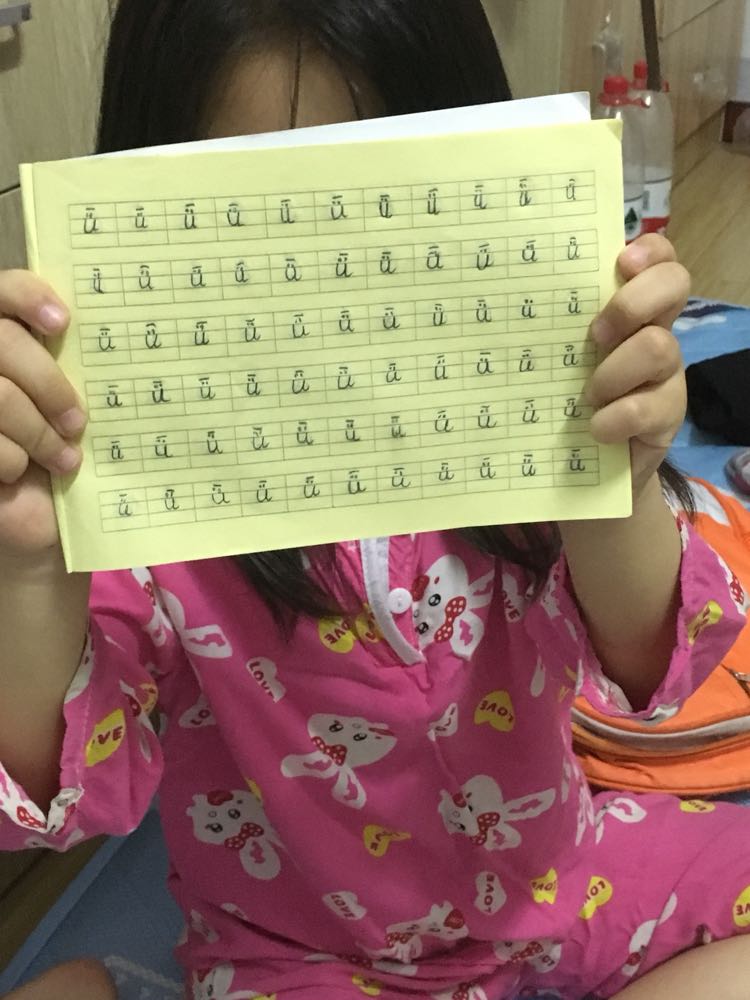 ǖ ǖ ǖ ǖ ǖ ǖ ǖ ǖ ǖ ǖ ǖ
ǖ ǖ ǖ ǖ ǖ ǖ ǖ ǖ ǖ ǖ ǖ
ǖ ǖ ǖ ǖ ǖ ǖ ǖ ǖ ǖ ü ǖ
ǖ ǖ ǖ ǖ ǖ ǖ ǖ ǖ ǖ ǖ ǖ
ǖ ǖ ǖ ǖ ǖ ǖ ǖ ǖ ǖ ǖ ǖ
ǖ ǖ ǖ ǖ ǖ ǖ ǖ ǖ ǖ ǖ ǖ
LOVE
LOVE
LOVE
LOVE
LOVE